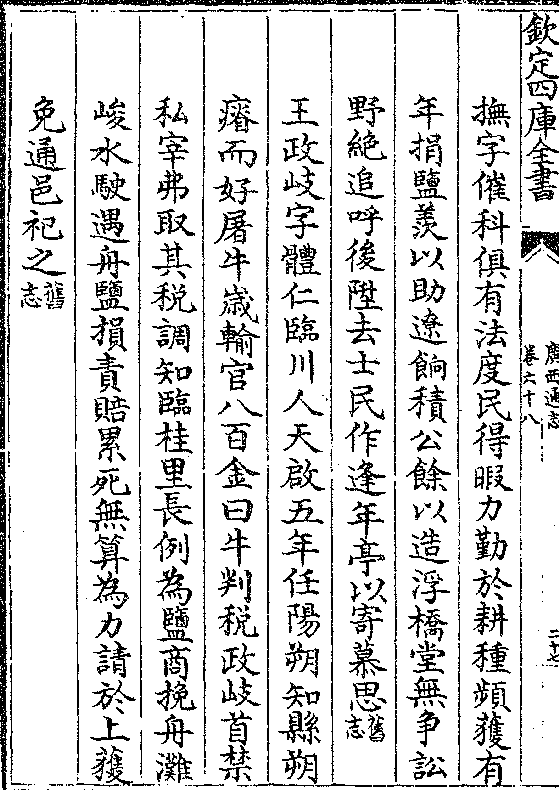 欽定四庫全書
廣西通志
卷六十八
撫字催科俱有法度民得暇力勤於耕種頻獲有
年捐鹽羨以助遼餉積公餘以造浮橋堂無争訟
野絶追呼後陞去士民作逢年亭以寄慕思舊志
王政岐字體仁臨川人天啟五年任陽朔知縣朔
瘠而好屠牛歳輸官八百金曰牛判税政岐首禁
私宰弗取其税調知臨桂里長例為鹽商挽舟灘
峻水駛遇舟鹽損責賠累死無算為力請於上獲
免通邑祀之舊志